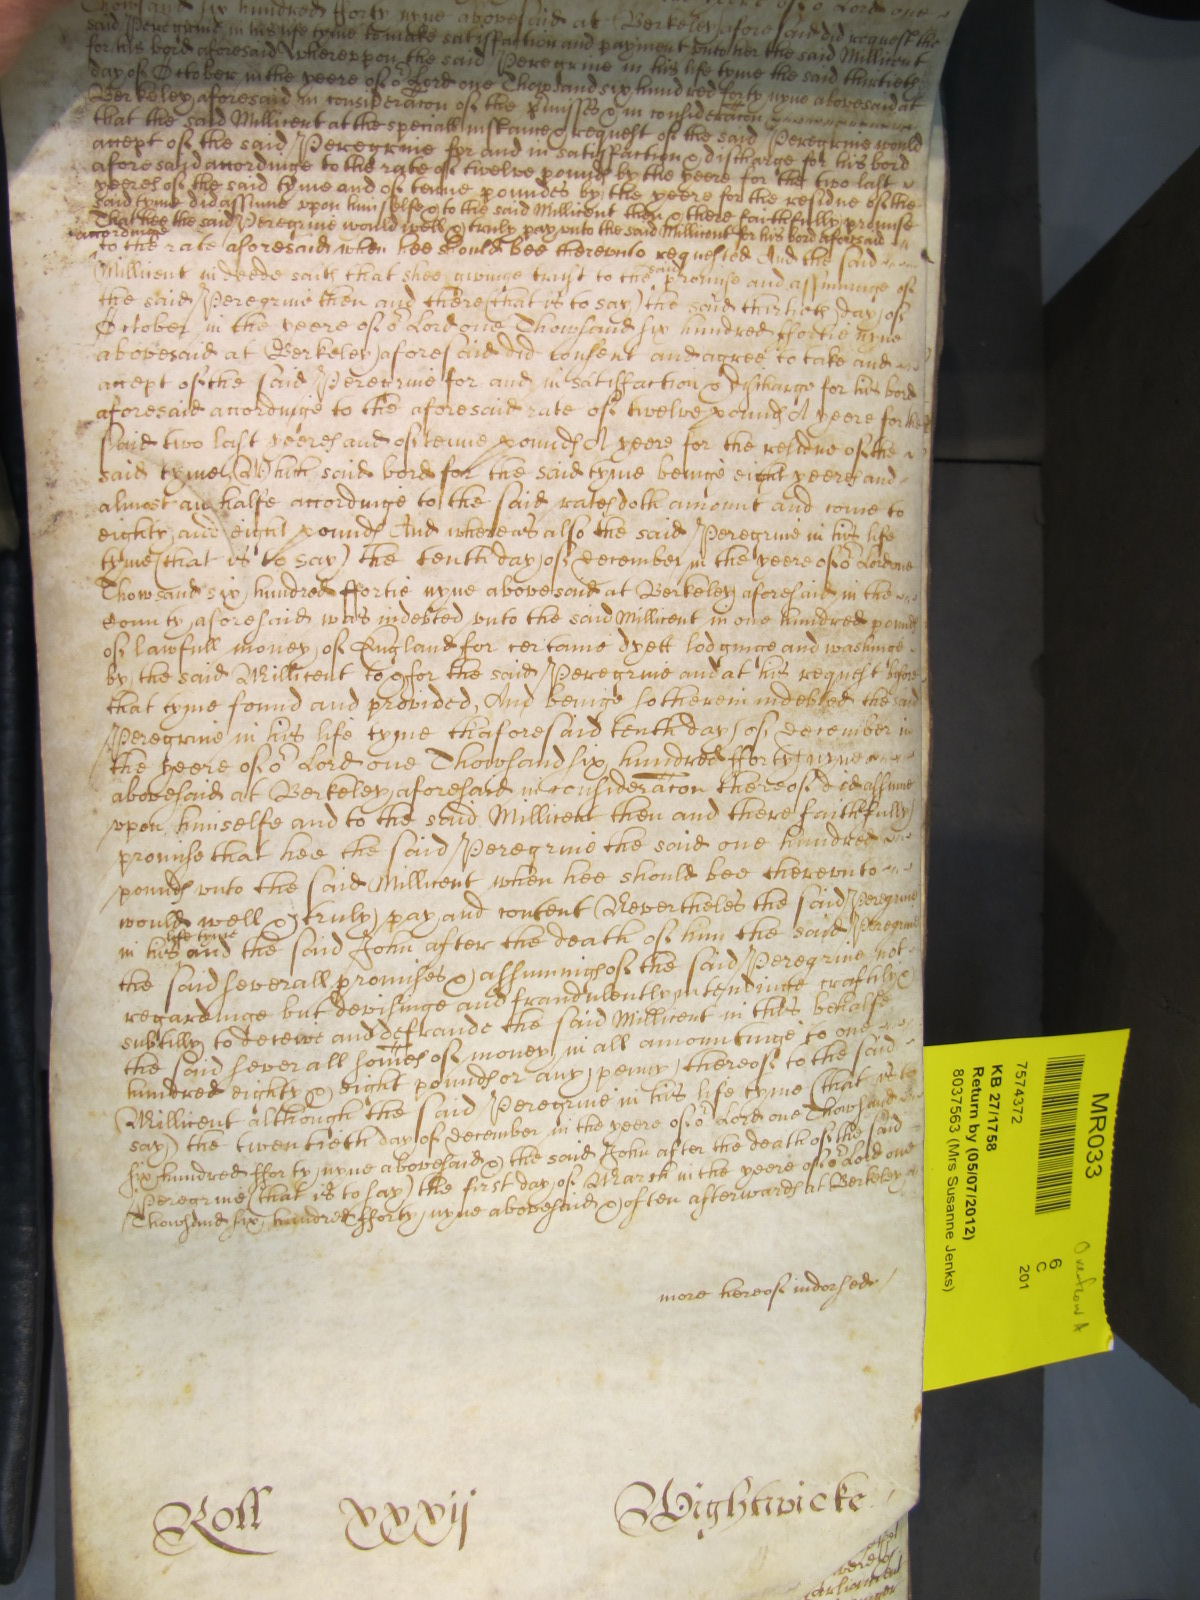 Thowsand six hundred fforty nyne abovesaid at Berkeley aforesaid did request the
said Peregrine in his life tyme to make satisfaction and payment unto her the said Millicent
for his bord aforesaid Whereuppon the said Peregrine in his life tyme the said thirtieth
day of October in the yeere of or Lord one Thowsand six hundred forty nyne abovesaid at
Berkeley aforesaid in consideracon of the pmisses & in consideracon
that the said Millicent at the speciall instance & request of the said Peregrine would
accept of the said Peregrine for and in satisfaction & discharge for his bord
aforesaid accordinge to the rate of twelve pounds by the yeere for the two last
yeeres of the said tyme and of tenne poundes by the yeere for the residue of the
said tyme did assume upon himselfe & to the said Millicent then & there faithfully promise
That hee the said Peregrine would well & truly pay unto the said Millicent for his bord aforesaid
accordinge
to the rate aforesaid when hee should bee thereunto requested And the said
Millicent in deede saith that shee givinge trust to the said promise and assuminge of
the said Peregrine then and there (that is to say) the said thirtieth day of
October in the yeere of or Lord one Thowsand six hundred ffortie nyne
abovesaid at Berkeley aforesaid did consent and agree to take and
accept of the said Peregrine for and in satisfaction & discharge for his bord
aforesaid accordinge to the aforesaid rate of twelve pounds A yeere for the
said two last yeeres and of tenne pounds A yeere for the residue of the
said tyme Which said bord for the said tyme beinge eight yeeres and
almost an halfe accordinge to the said rates doth amount and come to
eighty and eight pounds And whereas also the said Peregrine in his life
tyme (that is to say) the tenth day of December in the yeere of or Lord one
Thowsand six hundred ffortie nyne abovesaid at Berkeley aforesaid in the
County aforesaid was indebted unto the said Millicent in one hundred pounds
of lawfull money of England for certaine dyett lodginge and washinge
by the said Millicent to & for the said Peregrine and at his request before
that tyme found and provided, And beinge so therein indebted the said
Peregrine in his life tyme thaforesaid tenth day of December in
the yeere of or Lord one Thowsand six hundred fforty nyne
abovesaid at Berkeley aforesaid in consideracon thereof did assume
upon himselfe and to the said Millicent then and there faithfully
promise that hee the said Peregrine the said one hundred
pounds unto the said Millicent when hee should bee thereunto
would well & truly pay and content Neverthelesse the said Peregrine
in his life tyme and the said John after the death of him the said Peregrine
the said severall promises & assuminges of the said Peregrine not
regardinge but devisinge and fraudulently intendinge craftily &
subtilly to deceive and defraude the said Millicent in this behalfe
the said severall somes of money in all amountinge to one
hundred eighty & eight pounds or any penny thereof to the said
Millicent although the said Peregrine in his life tyme (that is to
say) the twentieth day of December in the yeere of or Lord one Thowsand
six hundred fforty nyne abovesaid & the said John after the death of the said
Peregrine (that is to say) the first day of March in the yeere of or Lord one
Thowsand six hundred fforty nyne abovesaid & often afterwards at Berkeley
more hereof indorsed
Roll xxxvij Wightwicke
MR033
6
C
201
7574372
KB 27/1758
Return by (05/07/2012)
8037563 (Mrs Susanne Jenks)